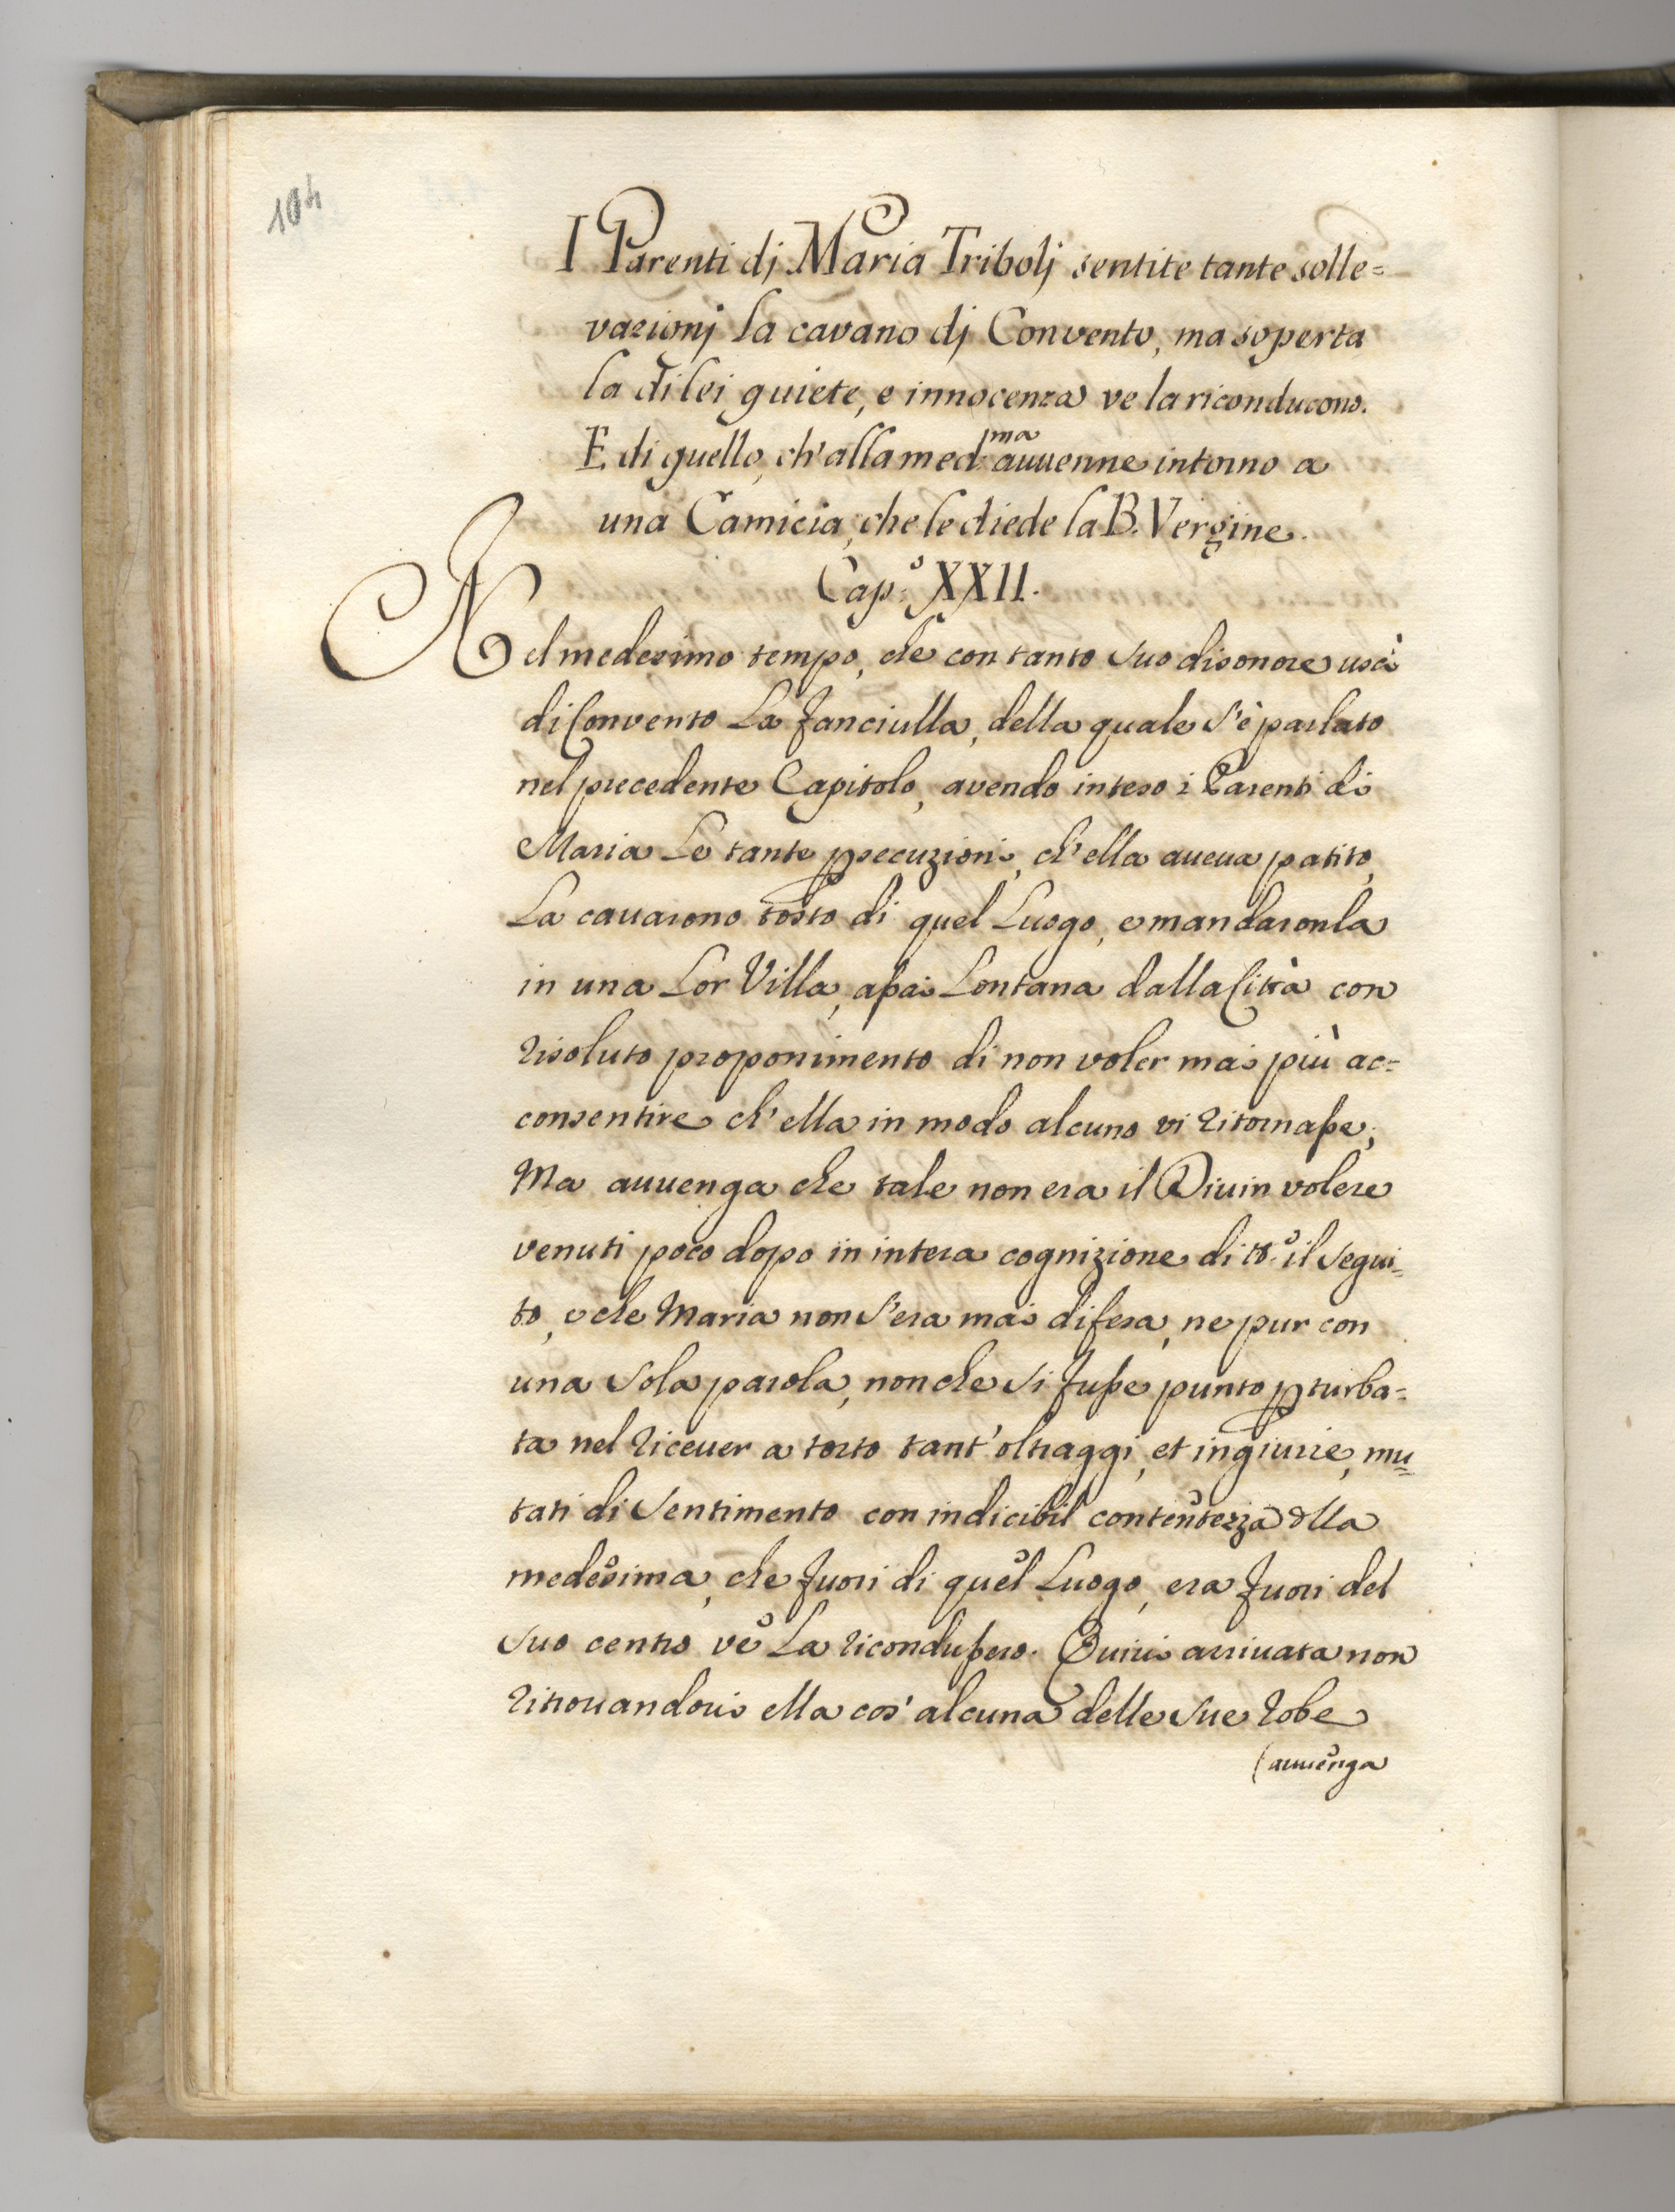 104
I Parenti dj Maria Tribolj sentite tante solle=
vazionj la cavano dj Convento, ma soperta
la di lei quiete, e innocenza ve la riconducono.
E di quello, ch'alla med:ma auuenne intorno a
una Camicia, che le diede la B. Vergine.
Cap:o XXII.
Nel medesimo tempo, che con tanto suo disonore uscì
di Convento la fanciulla, della quale s'è parlato
nel precedente Capitolo, avendo inteso i Parenti di
Maria le tante psecuzioni, ch'ella aueua patito,
la cauarono tosto di quel Luogo, e mandaronla
in una lor Villa, assai lontana dalla Città con
risoluto proponimento di non voler mai più ac=
consentire ch'ella in modo alcuno vi ritornasse;
Ma auuenga che tale non era il Diuin volere
venuti poco dopo in intera cognizione di tt.o il segui=
to, e che Maria non s'era mai difesa, ne pur con
una sola parola, non che si fusse punto pturba=
ta nel riceuer a torto tant'oltraggi, et ingiurie, mu=
tati di sentimento con indicibil contentezza dlla
medesima, che fuori di quel Luogo, era fuori del
suo centro ve la ricondussero. Quiui arriuata non
ritrouandoui ella cos'alcuna delle sue robe
(auuenga